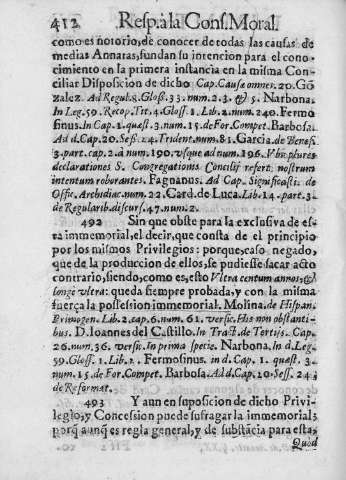 412 Resp. à la Cons. Moral.
como es notorio, de conocer de todas las causas de
medias Annatas, fundan su intencion para el cono-
cimiento en la primera instancia en la misma Con-
ciliar Disposicion de dicho Cap. Causæ omnes. 20. Gõ
zalez. Ad Regul. 8. Gloss. 33. num. 2. 3. & 5. Narbona.
In Leg. 59. Recop. Tit. 4. Gloss. 1. Lib. 2. num. 240. Fermo
sinus. In Cap. 1. quæst. 3. num. 15. de For. Compet. Barbosa.
Ad d. Cap. 20. Sess. 24. Trident. num. 81. Garcia. de Benefi.
3. part. cap. 2. à num. 190. vsque ad num. 196. Vbi plures
declarationes S. Congregationis Concilij refert. nostrum
intentum roborantes. Fagnanus. Ad Cap. Significasti. de
Offic. Archidiac. num. 22. Card. de Luca. Lib. 14. part. 3.
de Regularib. discurs. 47. num. 2.
492 Sin que obste para la exclusiva de es-
ta immemorial, el decir, que consta de el principio
por los mismos Privilegios: porque, caso negado,
que de la produccion de ellos, se pudiesse sacar acto
contrario, siendo, como es, esto Vltra centum annos, &
longè vltra: queda siempre probada, y con la misma
fuerça la possession immemorial. Molina. de Hispan.
Primogen. Lib. 2. cap. 6. num. 61. versic. His non obstanti-
bus. D. Ioannes del Castillo. In Tract. de Tertijs. Cap.
26. num. 36. versic. In prima specie. Narbona. In d. Leg.
59. Gloss. 1. Lib. 2. Fermosinus. in d. Cap. 1. quæst. 3.
num. 15. de For. Compet. Barbosa. Ad d. Cap. 20. Sess. 24.
de Reformat.
493 Y aun en suposicion de dicho Privi-
legio, y Concession puede sufragar la immemorial;
porq̃ aunq̃ es regla general, y de substãcia para esta,
Quod